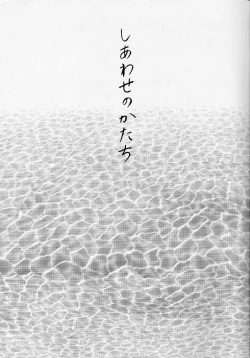 しあわせのかたち